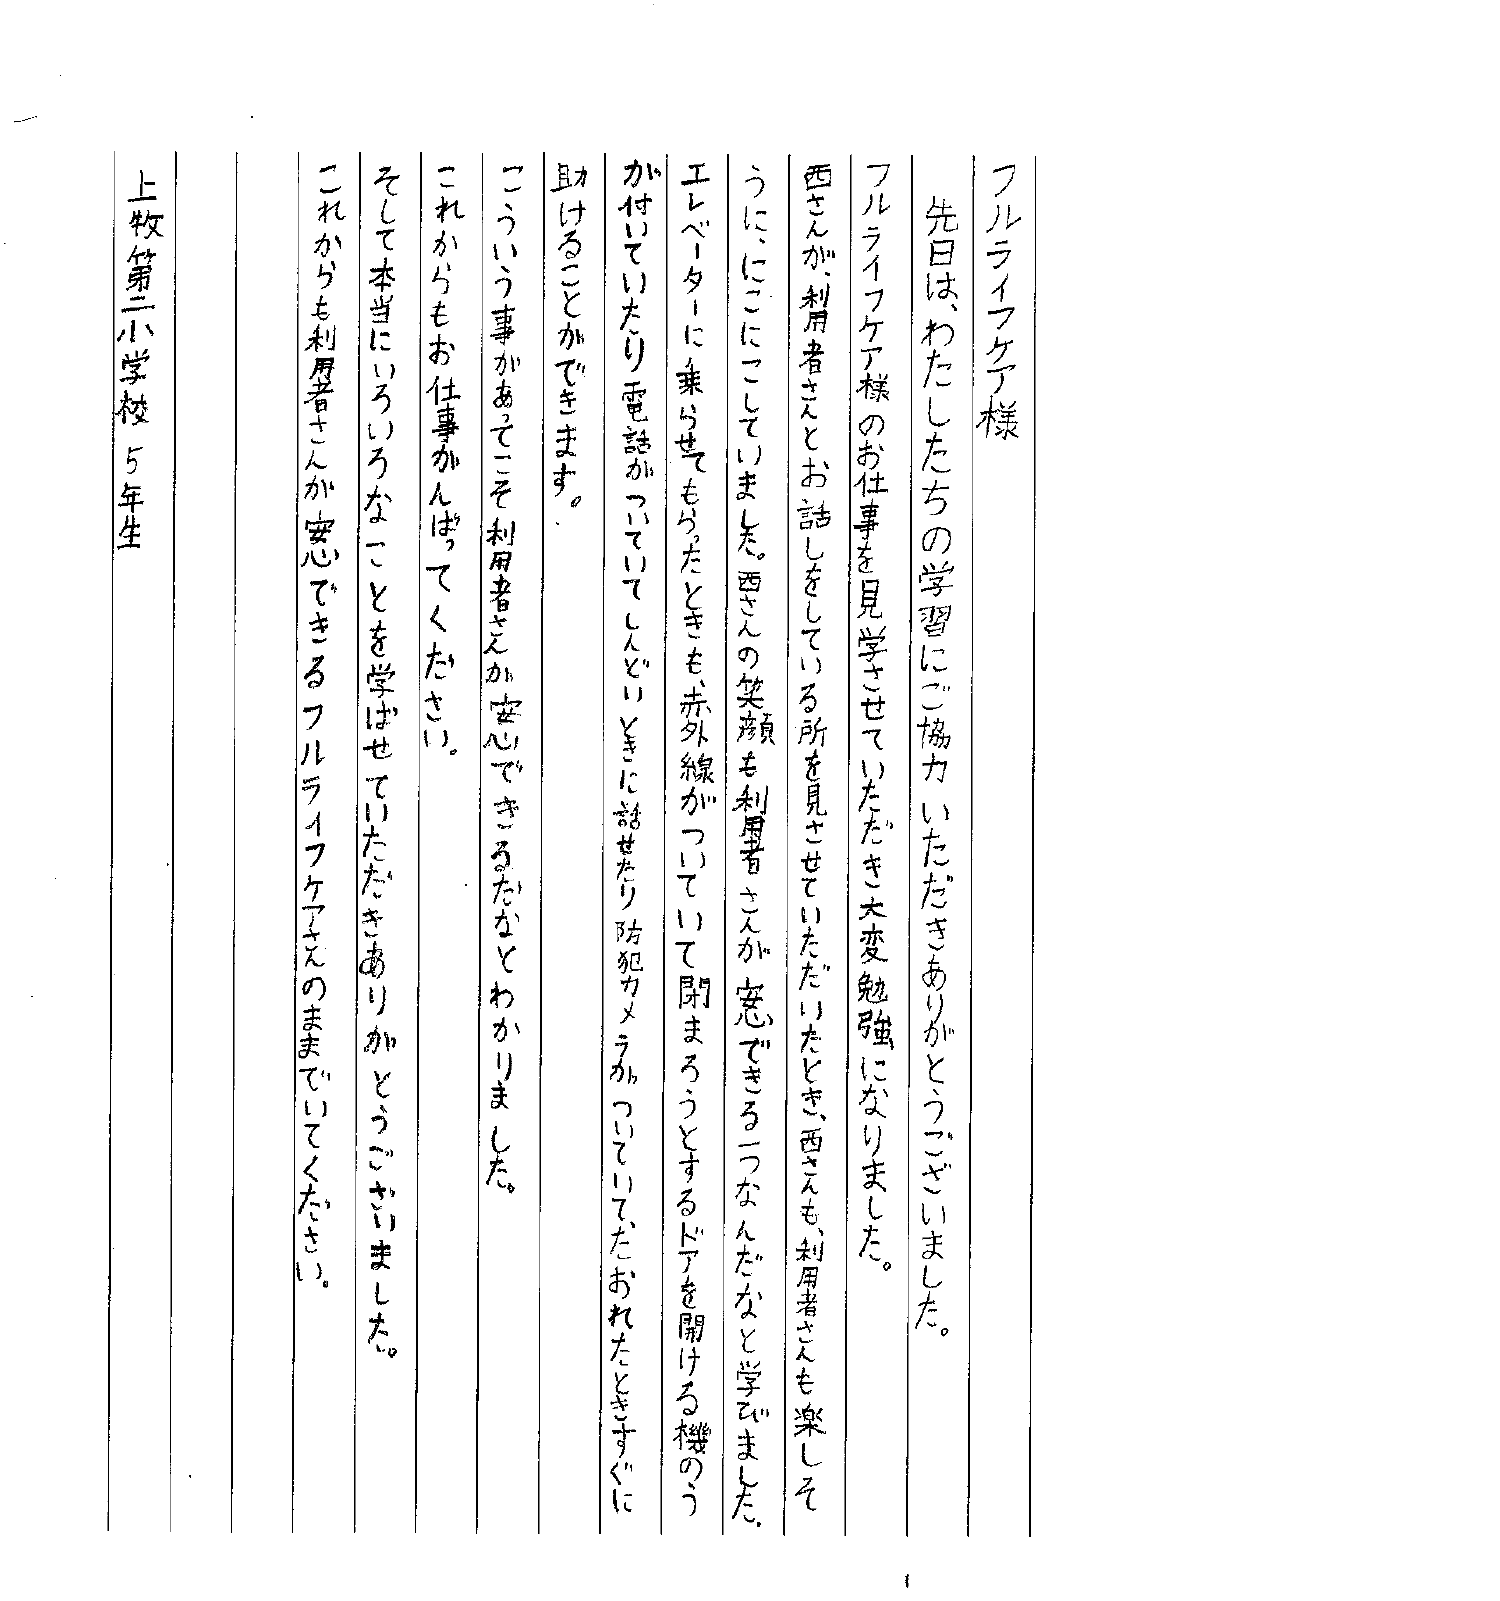 フルライフケア様
先日は、わたしたちの学習にご協力いただきありがとうございました。
フルライフケア様のお仕事を見学させていただき大変勉強になりました。
西さんが、利用者さんとお話しをしている所を見させていただいたとき、西さんも、利用者さんも楽しそ
うに、にこにこしていました。西さんの笑顔も利用者さんが安心できる一つなんだなと学びました。
エレベーターに乗らせてもらったときも、赤外線がついていて閉まろうとするドアを開ける機のう
が付いていたり電話がついていてしんどいときに話せたり防犯カメラがついていて、たおれたときすぐに
助けることができます。
こういう事があってこそ利用者さんが安心できるだなとわかりました。
これからもお仕事がんばってください。
そして本当にいろいろなことを学ばせていただきありがとうございました。
これからも利用者さんが安心できるフルライフケアさんのままでいてください。
上牧第二小学校 5年生